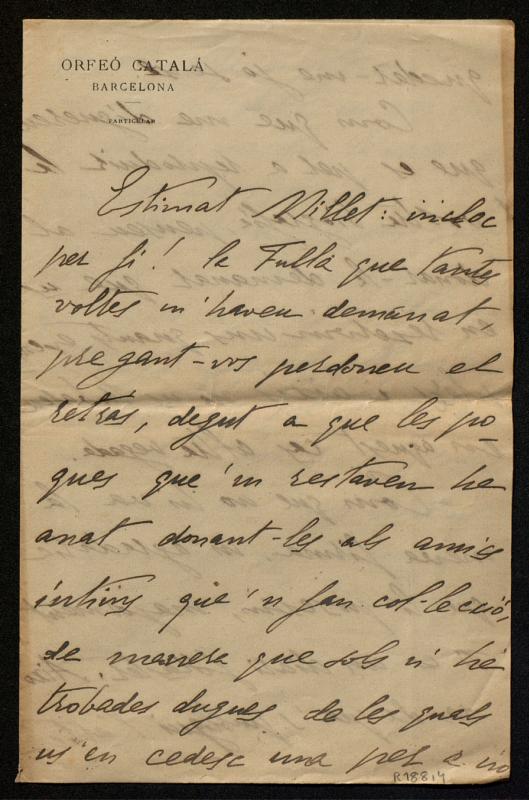 ORFEÓ CATALÁ
BARCELONA
PARTICULAR
Estimat Millet: incloc
per fi! la Fulla que tantes
voltes m'haveu demanat,
pregant-vos perdoneu el
retrás, degut a que les po-
ques que'm restaven he
anat donant-les als amics
íntims que'n fan col-lecció,
de manera que sols n'he
trobades dugues de les quals
us en cedesc una per a no
R.188,4